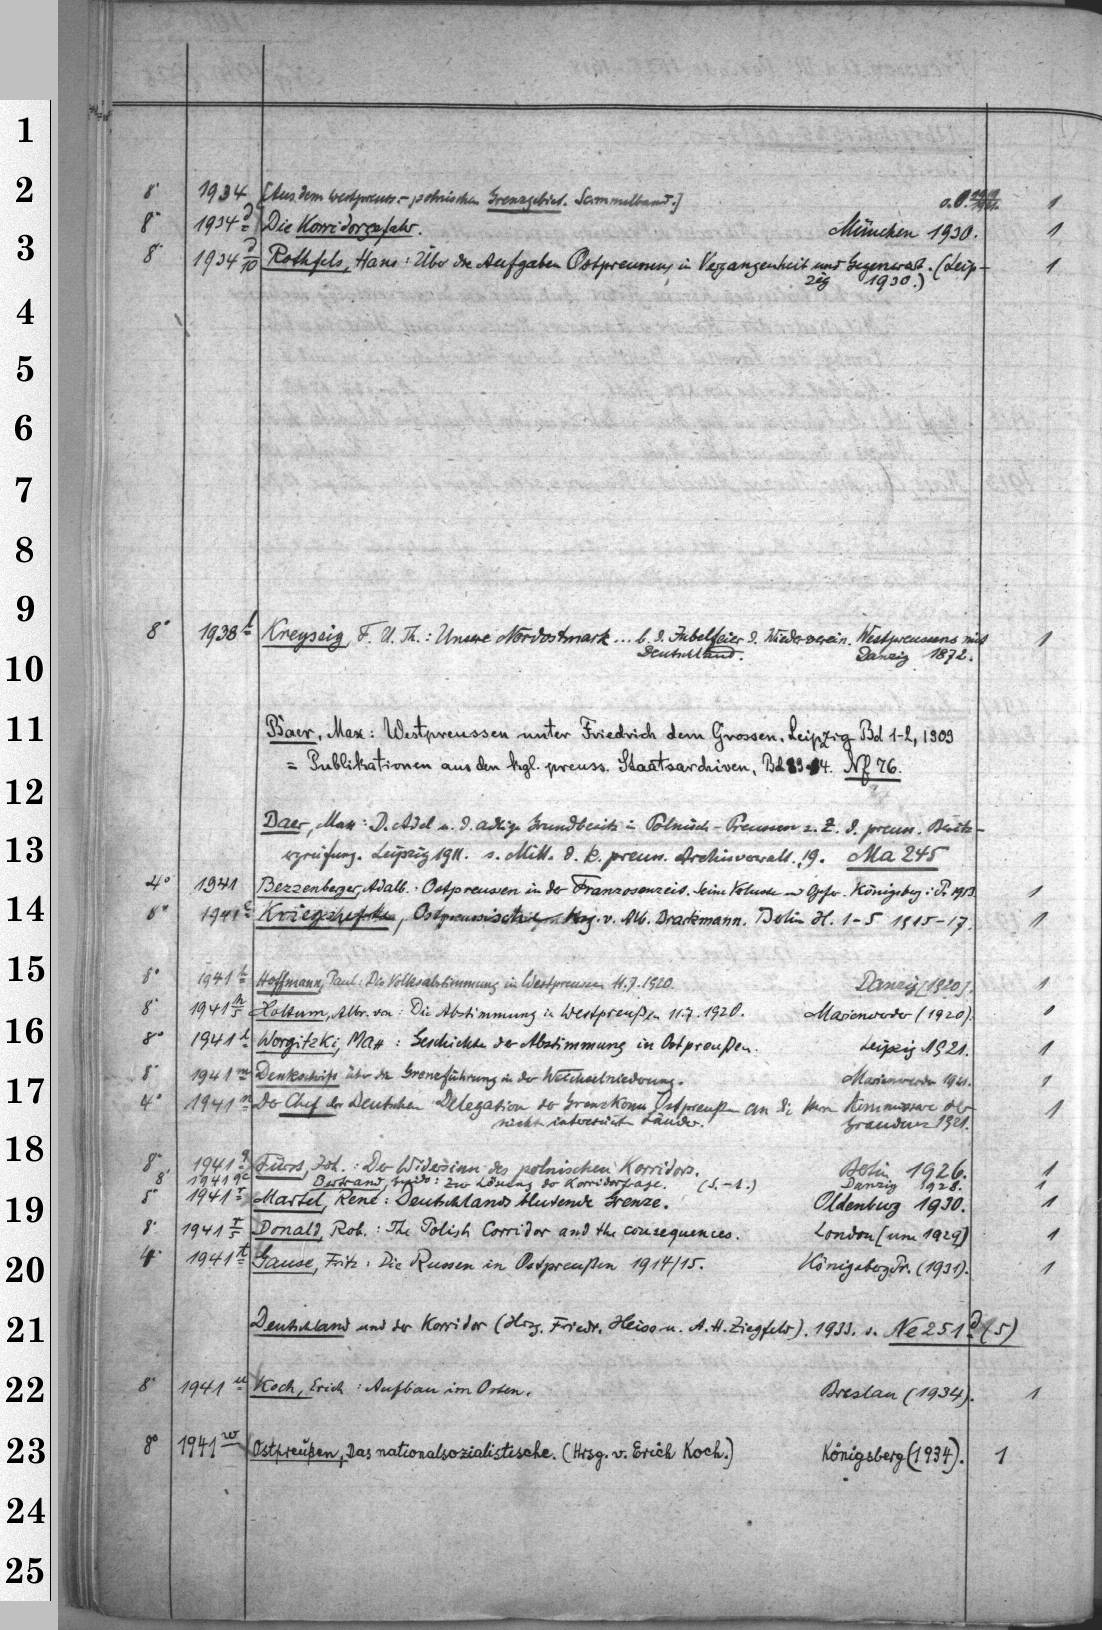 1
2
8° 1934 [Aus dem westpreuss.-polnischen Grenzgebiet. Sammelband.] o.O. 1
8° 1934 d Die Korridorgefahr. München 1930. 1
3
8° 1934 d/10 Rothfels, Hans: Über die Aufgaben Ostpreussens in Vergangenheit und Gegenwart. (Leip- 1
zig 1930.)
4
5
6
7
8
9
8° 1938 Kreyssig, F. U. Th.: Unsere Nordostmark ... b. d. Jubelfeier d. Wiederverein. Westpreussens mit 1
Deutschland. Danzig 1872.
10
11
Bär, Max: Westpreussen unter Friedrich dem Grossen. Leipzig Bd 1-2, 1909
= Publikationen aus den kgl. preuss. Staatsarchiven, Bd 83-84. Nf 76.
12
Baer, Max: D. Adel u. d. adlige Grundbesitz in Polnisch-Preussen z. Z. d. preuss. Besitz-
13
ergreifung. Leipzig 1911. s. Mitt. d. k. preuss. Archivverwalt., 19. Ma 245
4° 1941 Bezzenberger, Adalb.: Ostpreussen in der Franzosenzeit. Seine Verluste u. Opfer. Königsberg i. Pr. 1913 1
14
8° 1941 c Kriegshefte, Ostpreussische. Hrsg. v. Alb. Brackmann. Berlin H. 1-5 1915-17. 1
15
8° 1941 h Hoffmann, Paul: Die Volksabstimmung in Westpreussen 11.7.1920. Danzig [1920]. 1
8° 1941 h/5 Holtum, Albr. von: Die Abstimmung in Westpreußen 11.7.1920. Marienwerder (1920). 1
16
8° 1941 k Worgitzki, Max: Geschichte der Abstimmung in Ostpreußen. Leipzig 1921. 1
17
8° 1941 m Denkschrift über die Grenzführung in der Weichselniederung. Marienwerder 1921. 1
4° 1941 n Der Chef der Deutschen Delegation der Grenzkomm. Ostpreußen an die Herrn Kommissare der 1
nicht interessierten Länder. Graudenz 1921.
18
8° 1941 q Fürst, Joh.: Der Widersinn des polnischen Korridors. Berlin 1926. 1
8° 1941 qc Bertrand, Guido: Zur Lösung der Korridorfrage. (S.-A.) Danzig 1928. 1
19
8° 1941 r Martel, René: Deutschlands blutende Grenze. Oldenburg 1930. 1
8° 1941 r/5 Donald, Rob.: The Polish Corridor and the consequences. London [um 1929] 1
20
4° 1941 t Gause, Fritz: Die Russen in Ostpreußen 1914/15. Königsberg Pr. (1931). 1
21
Deutschland und der Korridor (Hrg. Friedr. Heiss u. A. H. Ziegfeld). 1933. s. Ne 251 d (5)
22
8° 1941 u Koch, Erich: Aufbau im Osten. Breslau (1934). 1
23
8° 1941 w Ostpreußen, Das nationalsozialistische. (Hrsg. v. Erich Koch.) Königsberg (1934). 1
24
25